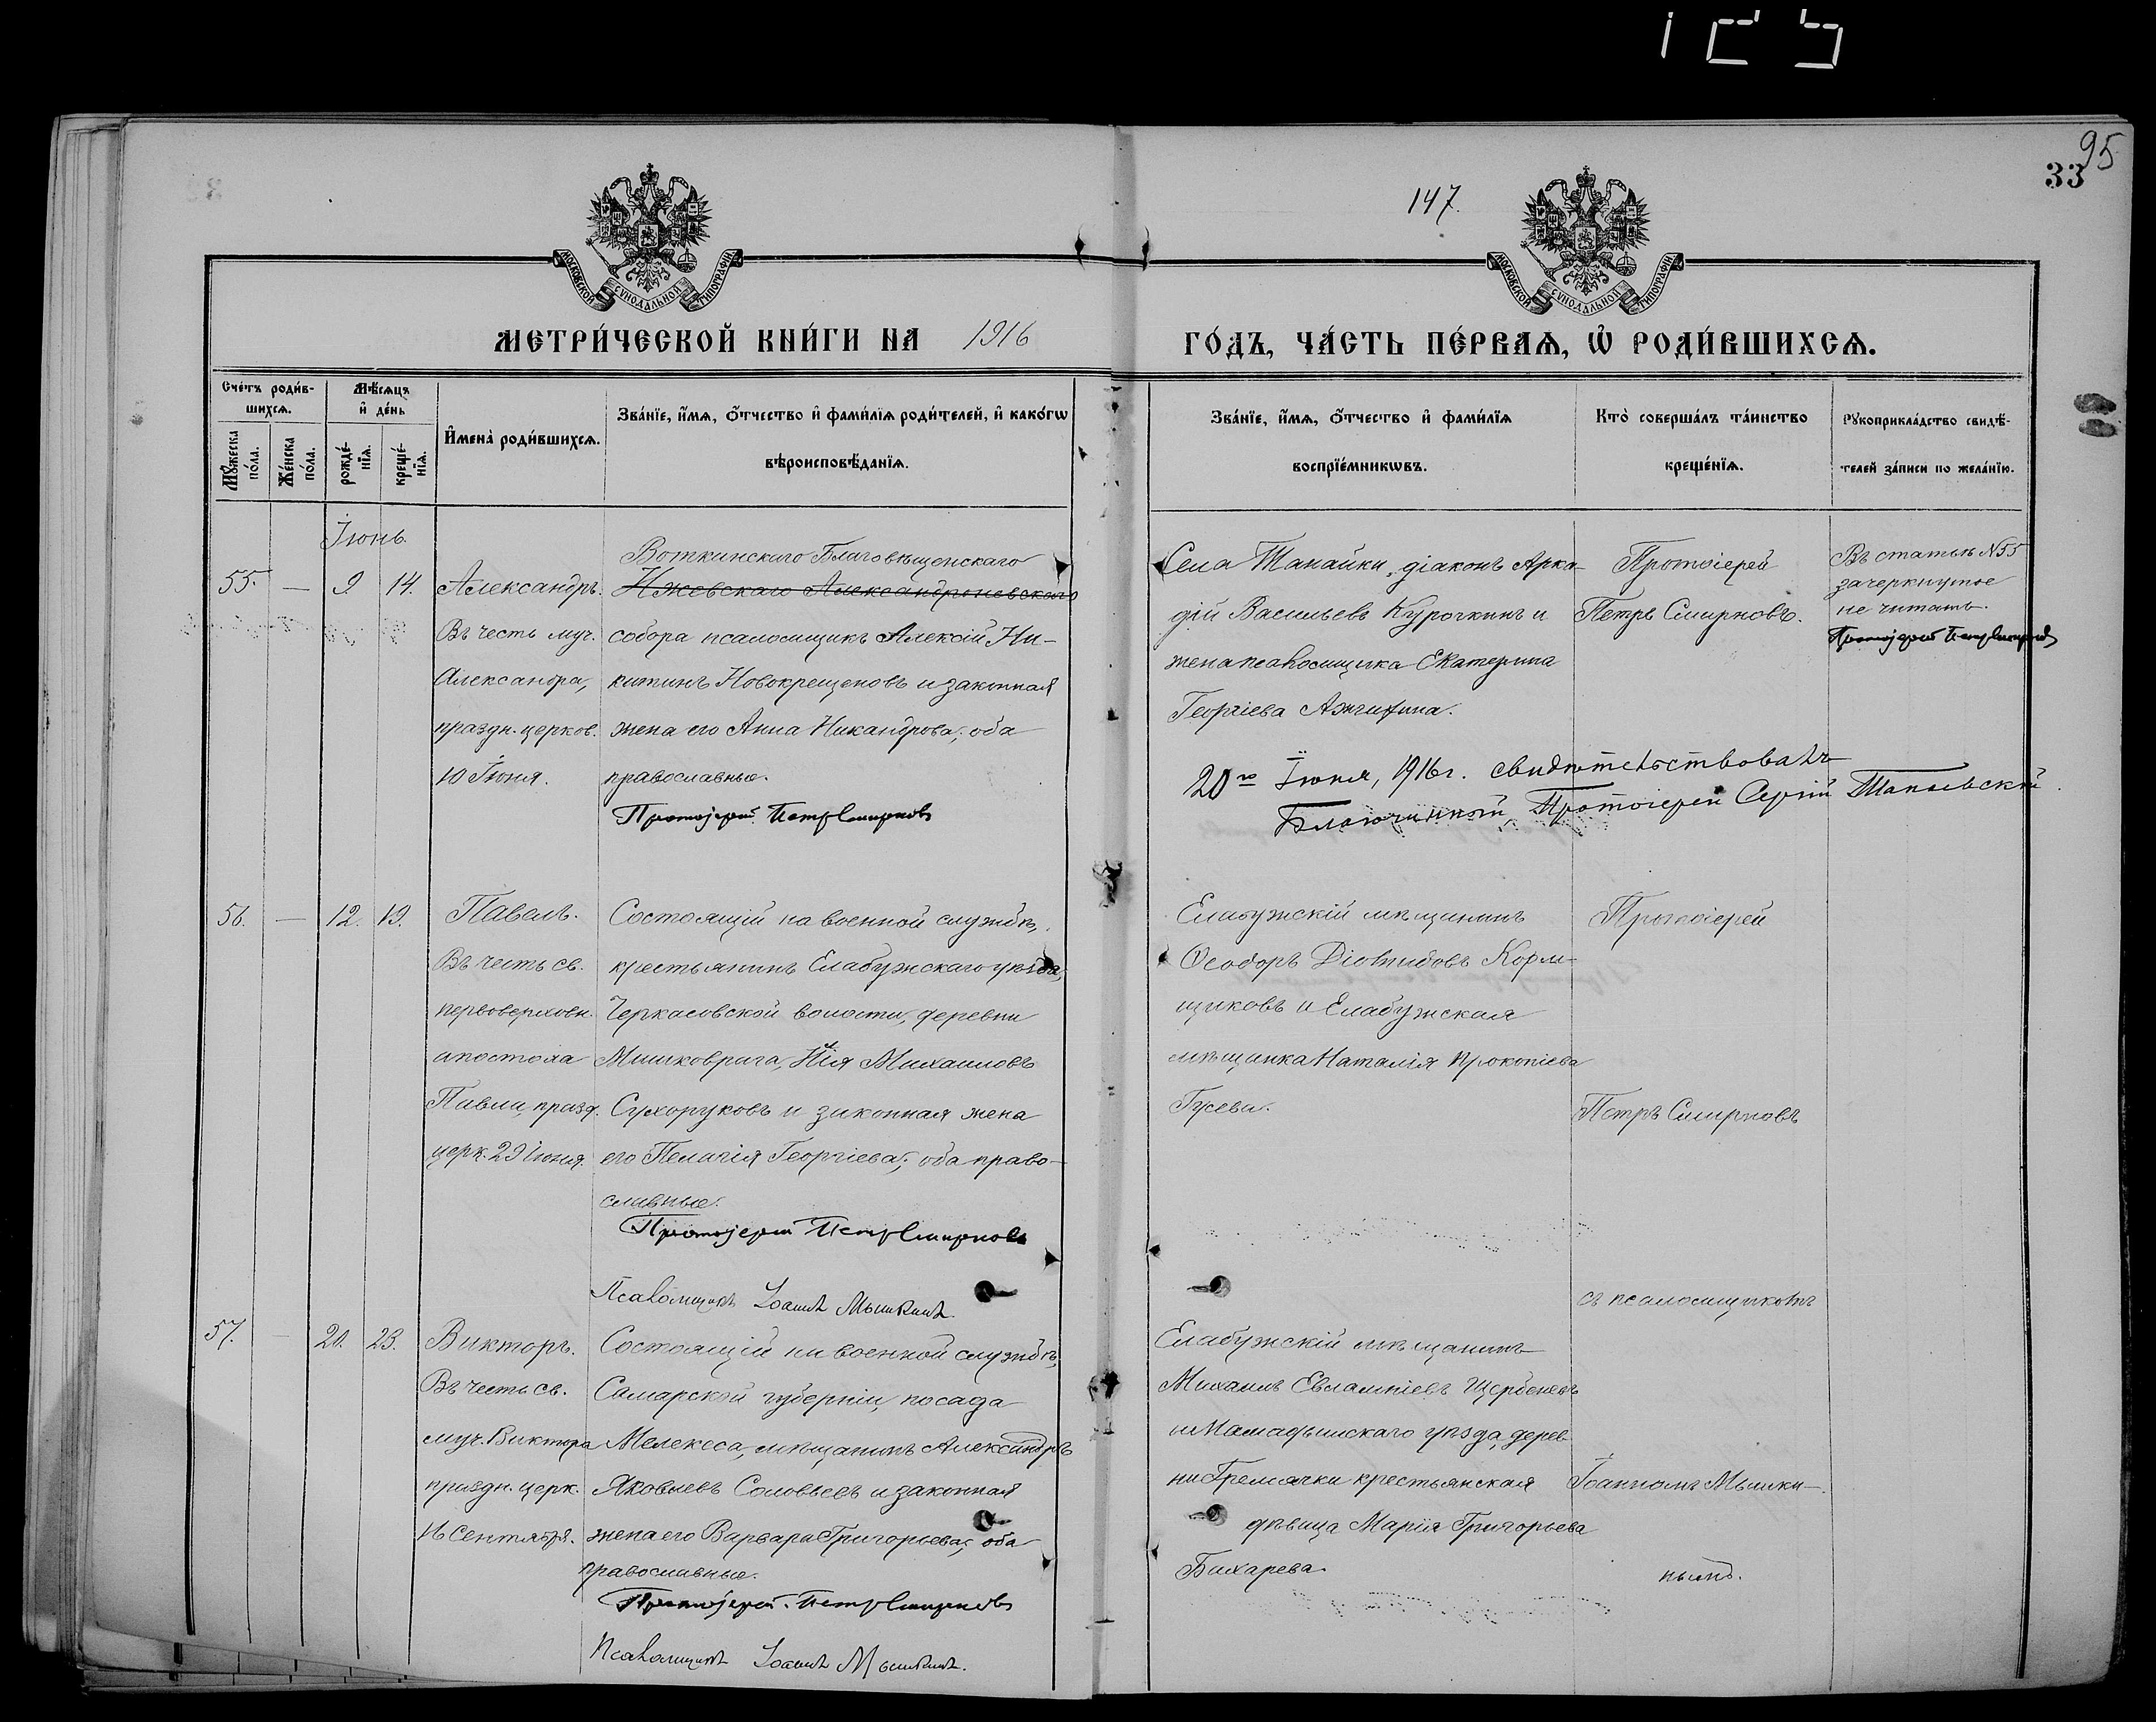 125
95
33
147.
МОСКОВСКОЙ СѴНОДАЛЬНОЙ ТИПОГРАФІИ
МОСКОВСКОЙ СѴНОДАЛЬНОЙ ТИПОГРАФІИ
МЕТРИ́ЧЕСКОЙ КНИ́ГИ НА 1916
ГО́ДЪ, ЧА́СТЬ ПЕ́РВАѦ, Ѡ҆ РОДИ́ВШИХСѦ.
Сче́тъ роди́в-
шихсѧ.
Мꙋ́жеска по́ла.
Же́нска по́ла.
Мѣ́сѧцъ
и҆ де́нь
рожде́-
нїѧ.
креще́-
нїѧ.
И҆мена̀ роди́вшихсѧ.
Зва́нїе, и҆́мѧ, ѻ҆́тчество и҆ фами́лїѧ роди́телей, и҆ како́гѡ
вѣроисповѣ́данїѧ.
Зва́нїе, и҆́мѧ, ѻ҆́тчество и҆ фами́лїѧ
воспрїе́мникѡвъ.
Кто̀ соверша́лъ та́инство
креще́нїѧ.
Рꙋкоприкла́дство свидѣ́-
телей за́писи по жела́нїю.
Іюнь
55. — 9 14.
Александръ.
Въ честь муч.
Александра,
праздн. церков.
10 Іюня.
Воткинскаго Благовѣщенскаго
Ижевскаго Александроневскаго
собора псаломщикъ Алексій Ни-
китинъ Новокрещеновъ и законная
жена его Анна Никандрова; оба
православные.
Протоіерей Петръ Смирновъ
Села Танайки, діаконъ Арка-
дій Васильевъ Курочкинъ и
жена псаломщика Екатерина
Георгіева
Протоіерей
Петръ Смирновъ.
Въ статьѣ №55
зачеркнутое
не читать.
Протоіерей Петръ Смирновъ
20го Іюня, 1916 г. свидѣтельствовалъ
Благочинный, Протоіерей Сергій
56. — 12. 19.
Павелъ.
Въ честь св.
первоверховн.
апостола
Павла, празд.
церк. 29 іюня.
Состоящій на военной службѣ,
крестьянинъ Елабужскаго уѣзда,
Черкасовской волости, деревни
Илія Михаиловъ
Сухоруковъ и законная жена
его Пелагія Георгіева; оба право-
славные.
Протоіерей Петръ Смирновъ
Псаломщикъ Іоаннъ Мышкинъ.
Елабужскій мѣщанинъ
Ѳеодоръ Діомидовъ Корм-
щиковъ и Елабужская
мѣщанка Наталія Прокопіева
Гусева.
Протоіерей
Петръ Смирновъ
съ псаломщикомъ
57. — 20. 23.
Викторъ.
Въ честь св.
муч. Виктора
праздн. церк.
16 Сентября.
Состоящій на военной службѣ,
Самарской губерніи, посада
Мелекеса, мѣщанинъ Александръ
Яковлевъ Соловьевъ и законная
жена его Варвара Григорьева; оба
православные.
Протоіерей Петръ Смирновъ
Псаломщикъ Іоаннъ Мышкинъ.
Елабужскій мѣщанинъ
Михаилъ Евлампіевъ Щербеневъ
и Мамадышскаго уѣзда, дерев-
ни Гремячки крестьянская
дѣвица Марія Григорьева
Бихарева.
Іоанномъ Мышки-
нымъ.